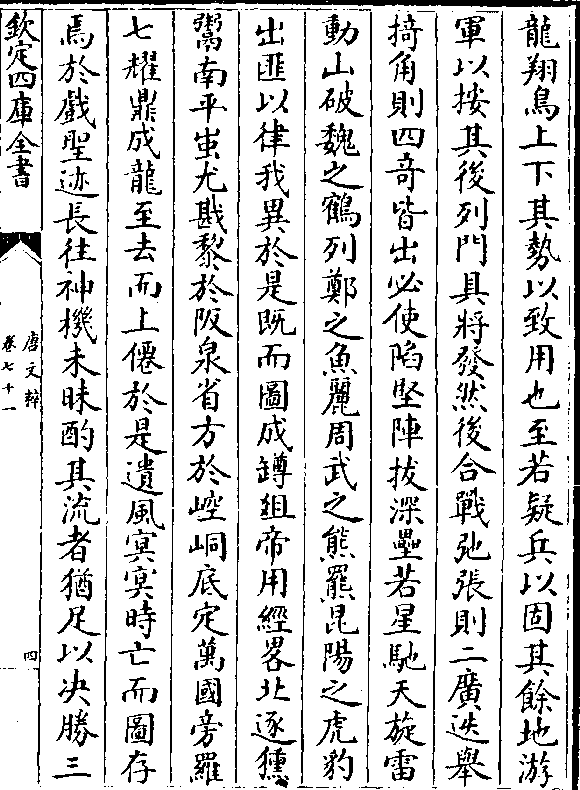 龍翔鳥上下其勢以致用也至若疑兵以固其餘地游
軍以按其後列門具將發然後合戰弛張則二廣迭舉
掎角則四竒皆出必使陷堅陣拔深壘若星馳天旋雷
動山破魏之鶴列鄭之魚麗周武之熊羆昆陽之虎豹
出匪以律我異於是既而圖成罇俎帝用經畧北逐獯
鬻南平蚩尤戡黎於阪泉省方於崆峒底定萬國旁羅
七耀鼎成龍至去而上僊於是遺風㝠㝠時亡而圖存
焉於戲聖迹長往神機未昧酌其流者猶足以决勝三
欽定四庫全書
唐文粹
卷七十一
四